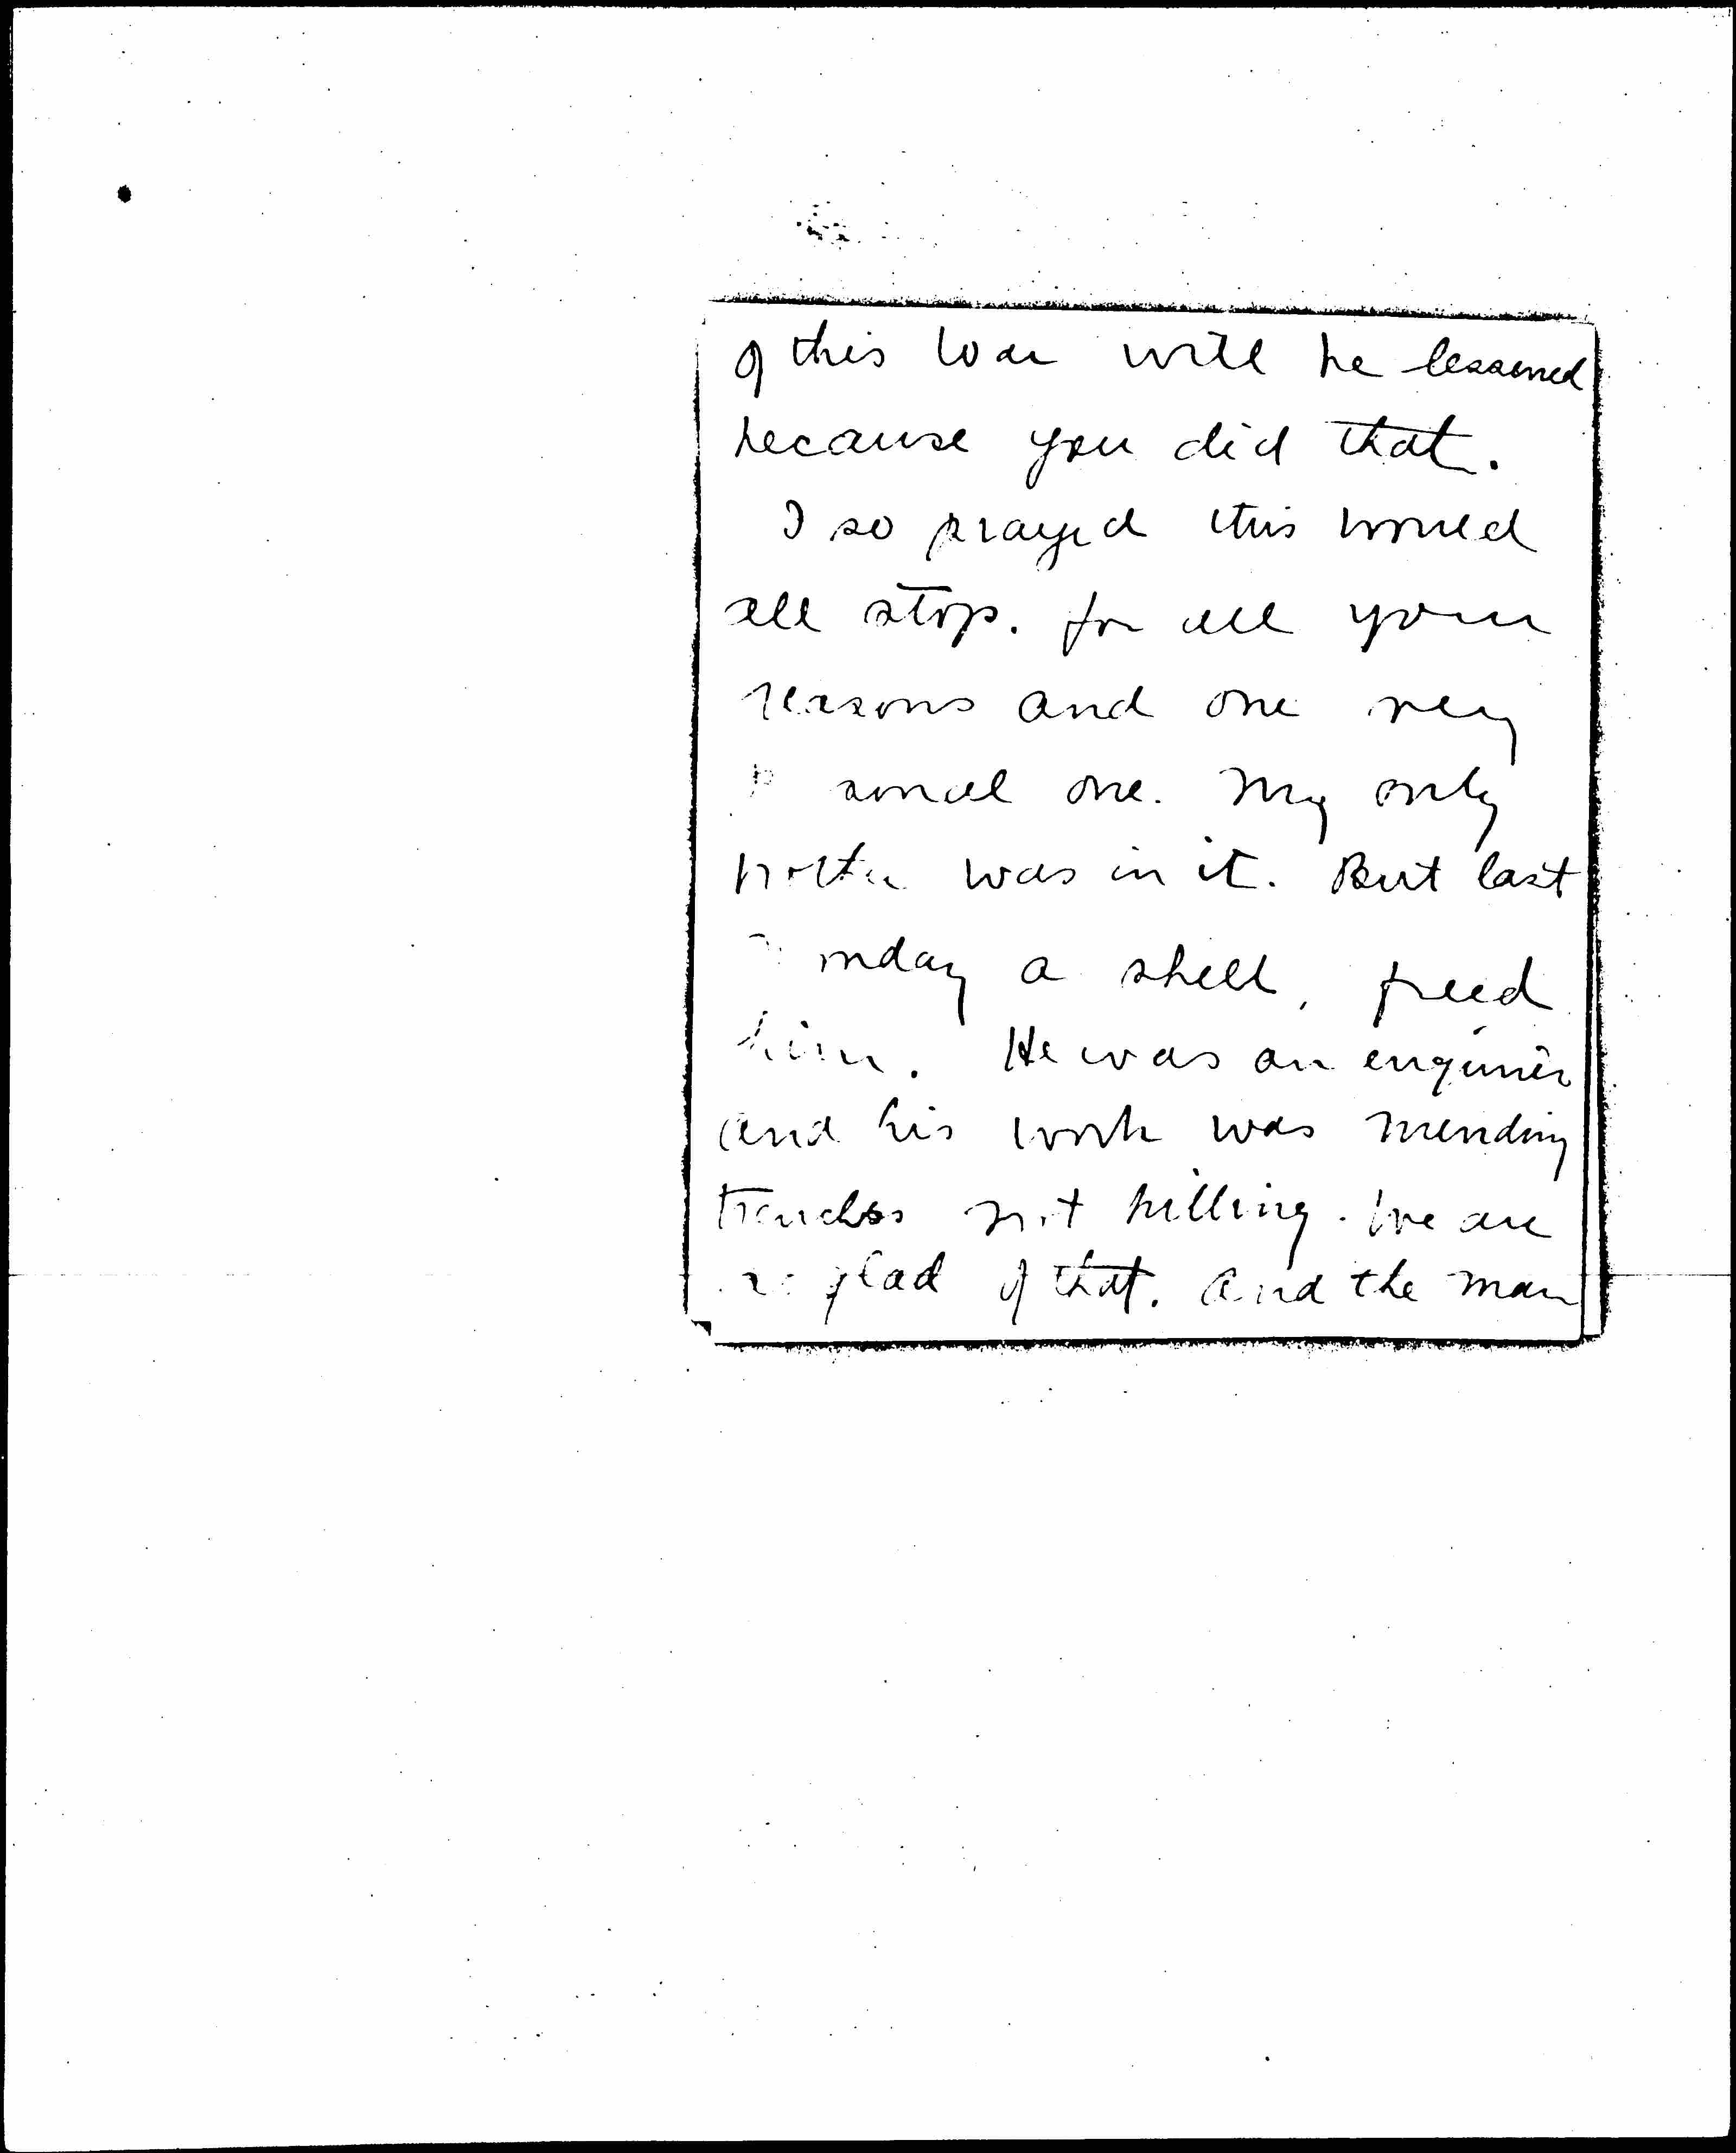 of this war will be lessened
because you did that.
I so prayed this would
all stop. for all your
reasons and one very
sonal one. My only
brother was in it. But last
nday a shell, freed
him. He was an engineer
and his work was mending
trenches not killing. We are
so glad of that. And the man